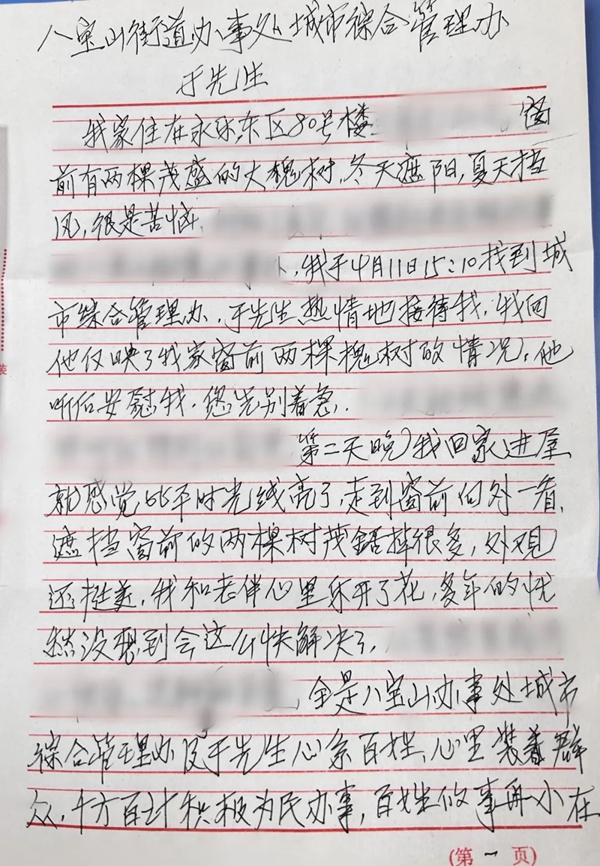 八宝山街道办事处城市综合管理办
于先生
我家住在永乐东区80号楼 窗
前有两棵茂盛的大槐树,冬天遮阳,夏天挡
风,很是苦恼
,我于4月11日15:10找到城
市综合管理办,于先生热情地接待我,我向
他反映了我家窗前两棵槐树的情况,他
听后安慰我,您先别着急,
第二天晚,我回家进屋
就感觉比平时光线亮了,走到窗前向外一看,
遮挡窗前的两棵树茂锯掉很多,外观
还挺美,我和老伴心里乐开了花,多年的忧
愁没想到会这么快解决了,
,全是八宝山办事处城市
综合管理办及于先生心系百姓,心里装着群
众,千方百计积极为民办事,百姓的事再小在
(第一页)